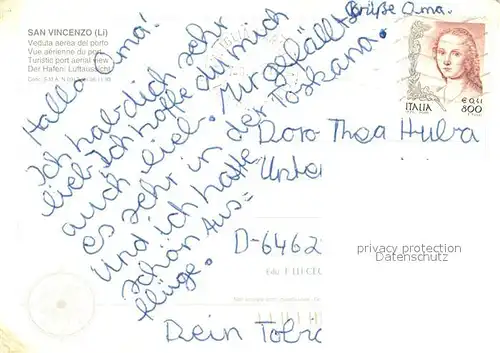 SAN VINCENZO (Li)
Veduta aerea del porto
Vue aérienne du port
Turistic port aerial view
Der Hafen: Luftaussicht
Hallo Oma!
Ich hab dich sehr
lieb. Ich hoffe du mich
auch lieb. Mir gefällt
es sehr in der Toskana.
Und ich hatte
schön Aus=
flüge.
Grüße Oma.
ITALIA
€ 0,41
800
Doro Thea Hulva
Unter
D-6462
privacy protection
Datenschutz
Dein Tobi